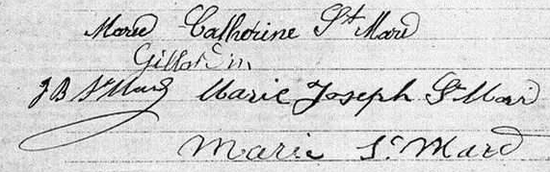 Mared Catherine St Mard
Gillardin
J B St Mard Marie Joseph St Mard
Marie St Mard